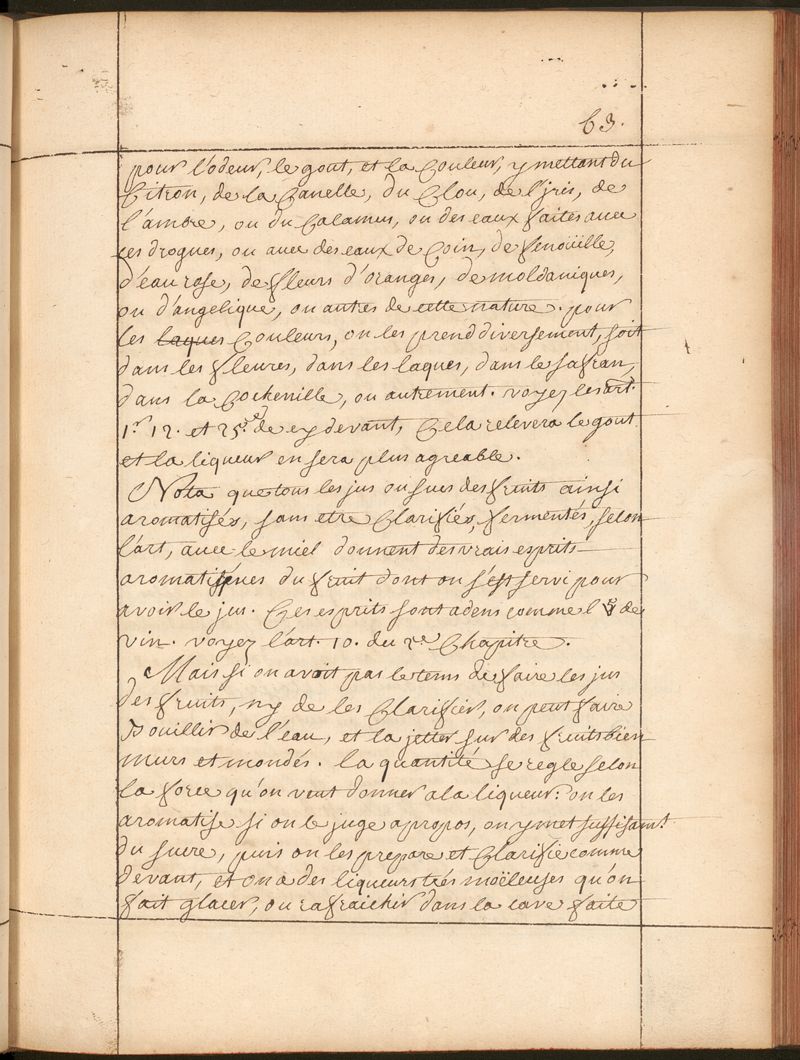 63.
pour l'odeur, le gout, et la Couleur, y mettant du
Citron, de la Canelle, du Clou, de l'jris, de
l'ambre, ou du Calamus, ou des eaux faites avec
ces drogues, ou avec des eaux de Coin, de fenoüille,
d'eau rose, de fleurs d'oranges, de moldaniques,
ou d'angelique, ou autres de cette nature. pour
les laques Couleurs, on les prend diversement, soit
dans les fleures, dans les laques, dans le safran,
dans la Cochenille, ou autrement. voyez les art.
1.er 12. et 25.e de cy devant, Cela relevera le gout
et la liqueur en sera plus agreable.
Nota que tous les jus ou sucs des fruits ainsi
aromatisés, sans etre Clarifiés, fermentés, selon
l'art, avec le miel donnent des vrais esprits
aromatiques du fruit dont on s'est servi pour
avoir le jus. Ces esprits sont adens comme l de
vin. voyez l'art. 10. du 2.e Chapitre.
Mais si on avoit pas le tems de faire les jus
des fruits, ny de les Clarifier, on peut faire
Bouillir de l'eau, et la jetter sur des fruits bien
murs et mondés. la quantité se regle selon
la force qu'on veut donner a la liqueur: on les
aromatise si on le juge a propos, on y met suffisamt.
du sucre, puis on les prepare et Clarifie comme
devant, et on a des liqueurs trés moëleuses qu'on
fait glacer, ou rafraichir dans la cave faite